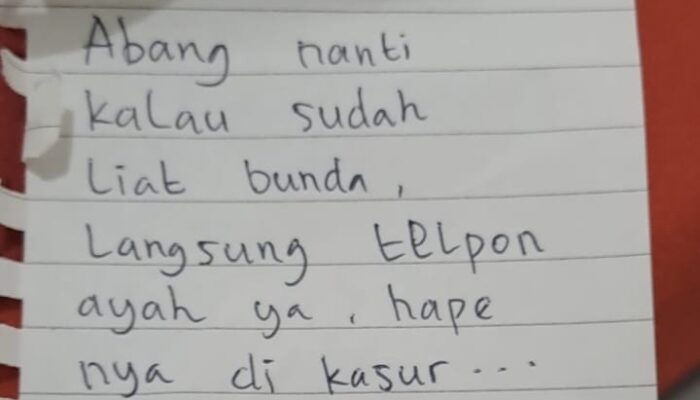 Abang nanti
kalau sudah
liat bunda,
langsung telpon
ayah ya, hape
nya di kasur...